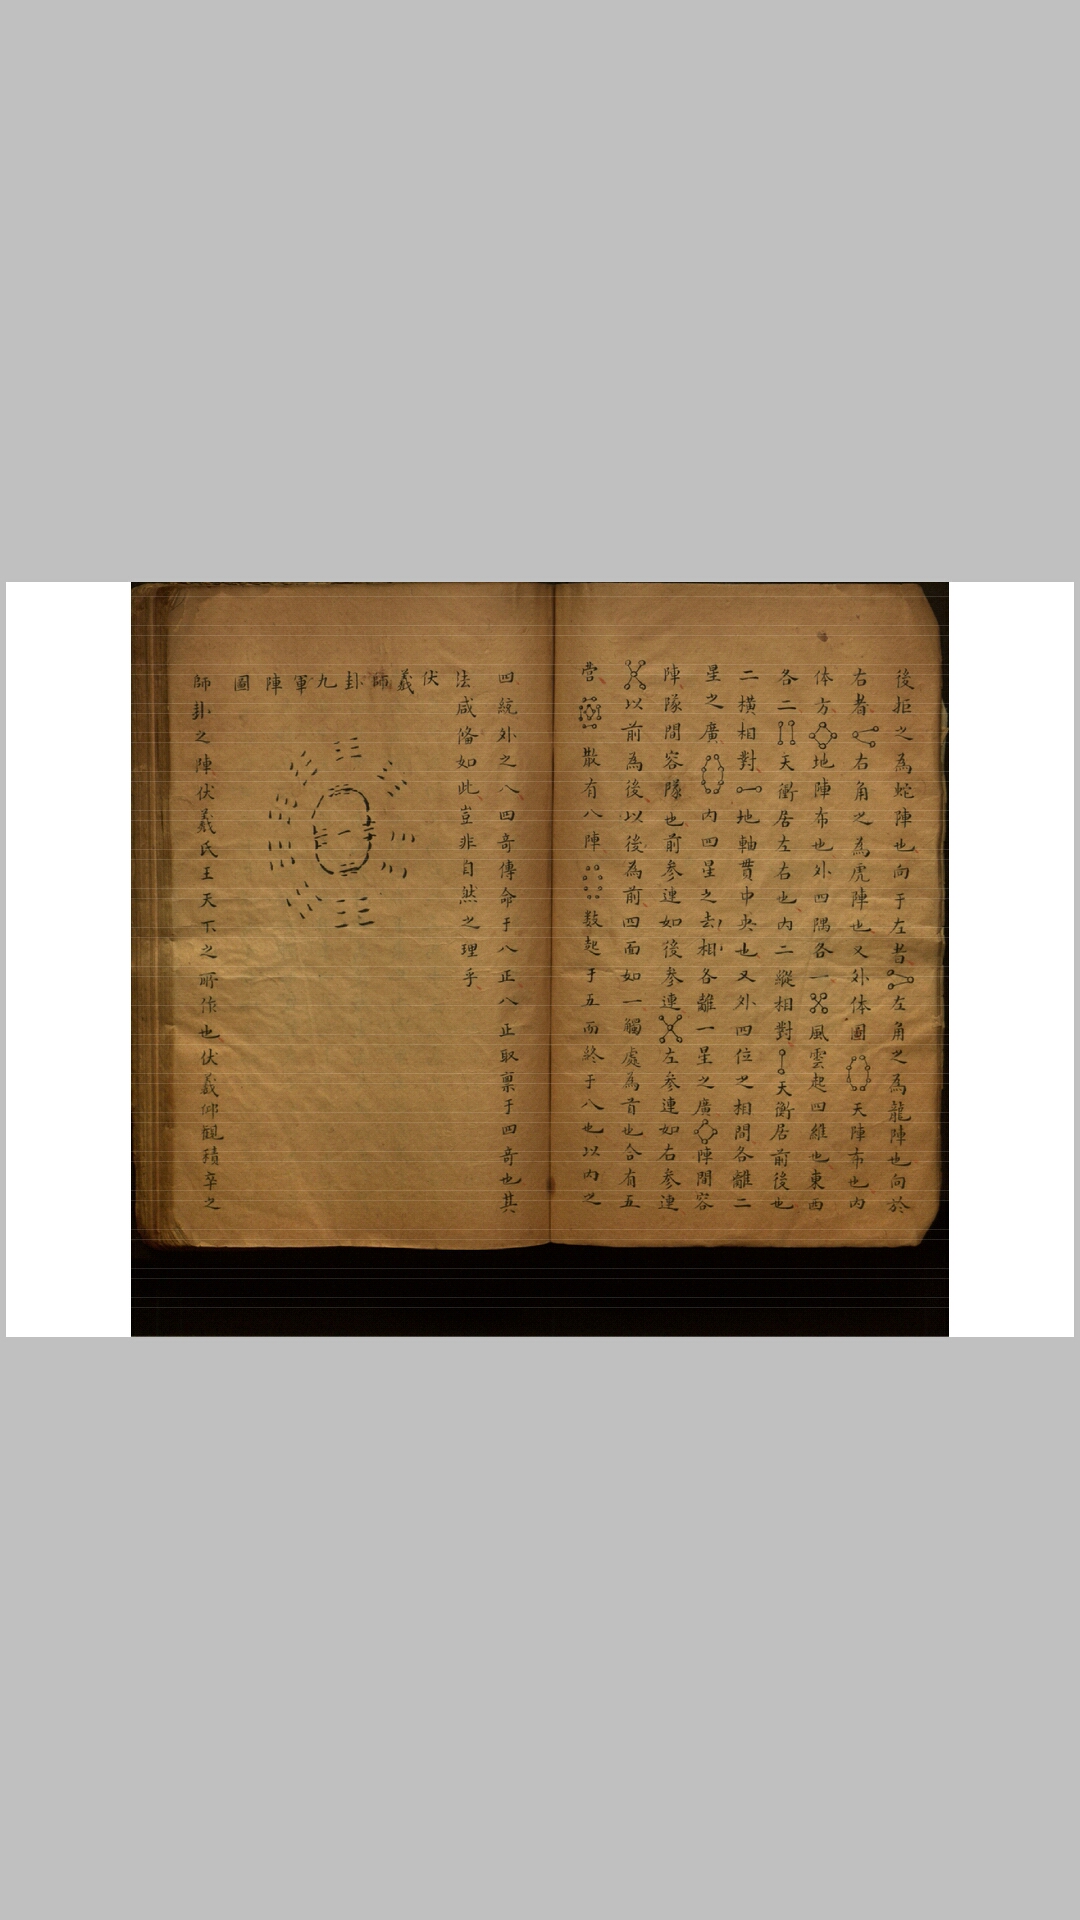 後拒之為蛇陣也向于左者左角之為龍陣也向於
右者右角之為虎陣也又外体圖天陣布也内
体方地陣布也外四隅各一風雲起四維也東西
各二天衝居左右也内二縱相對天衡居前後也
二横相對地軸貫中央也又外四位之相間各離二
星之廣内四星之去相各離一星之廣陣間容
陣隊間容隊也前参連如後参連左参連如右参連
以前為後以後為前四面如一觸處為首也合有五
营散有八陣数起于五而終于八也以内之
四統外之八四奇傳命于八正八正取禀于四奇也其
法咸俻如此豈非自然之理乎
伏羲師卦九軍陣圖
師卦之陣伏羲氏王天下之所作也伏羲仰觀積卒之